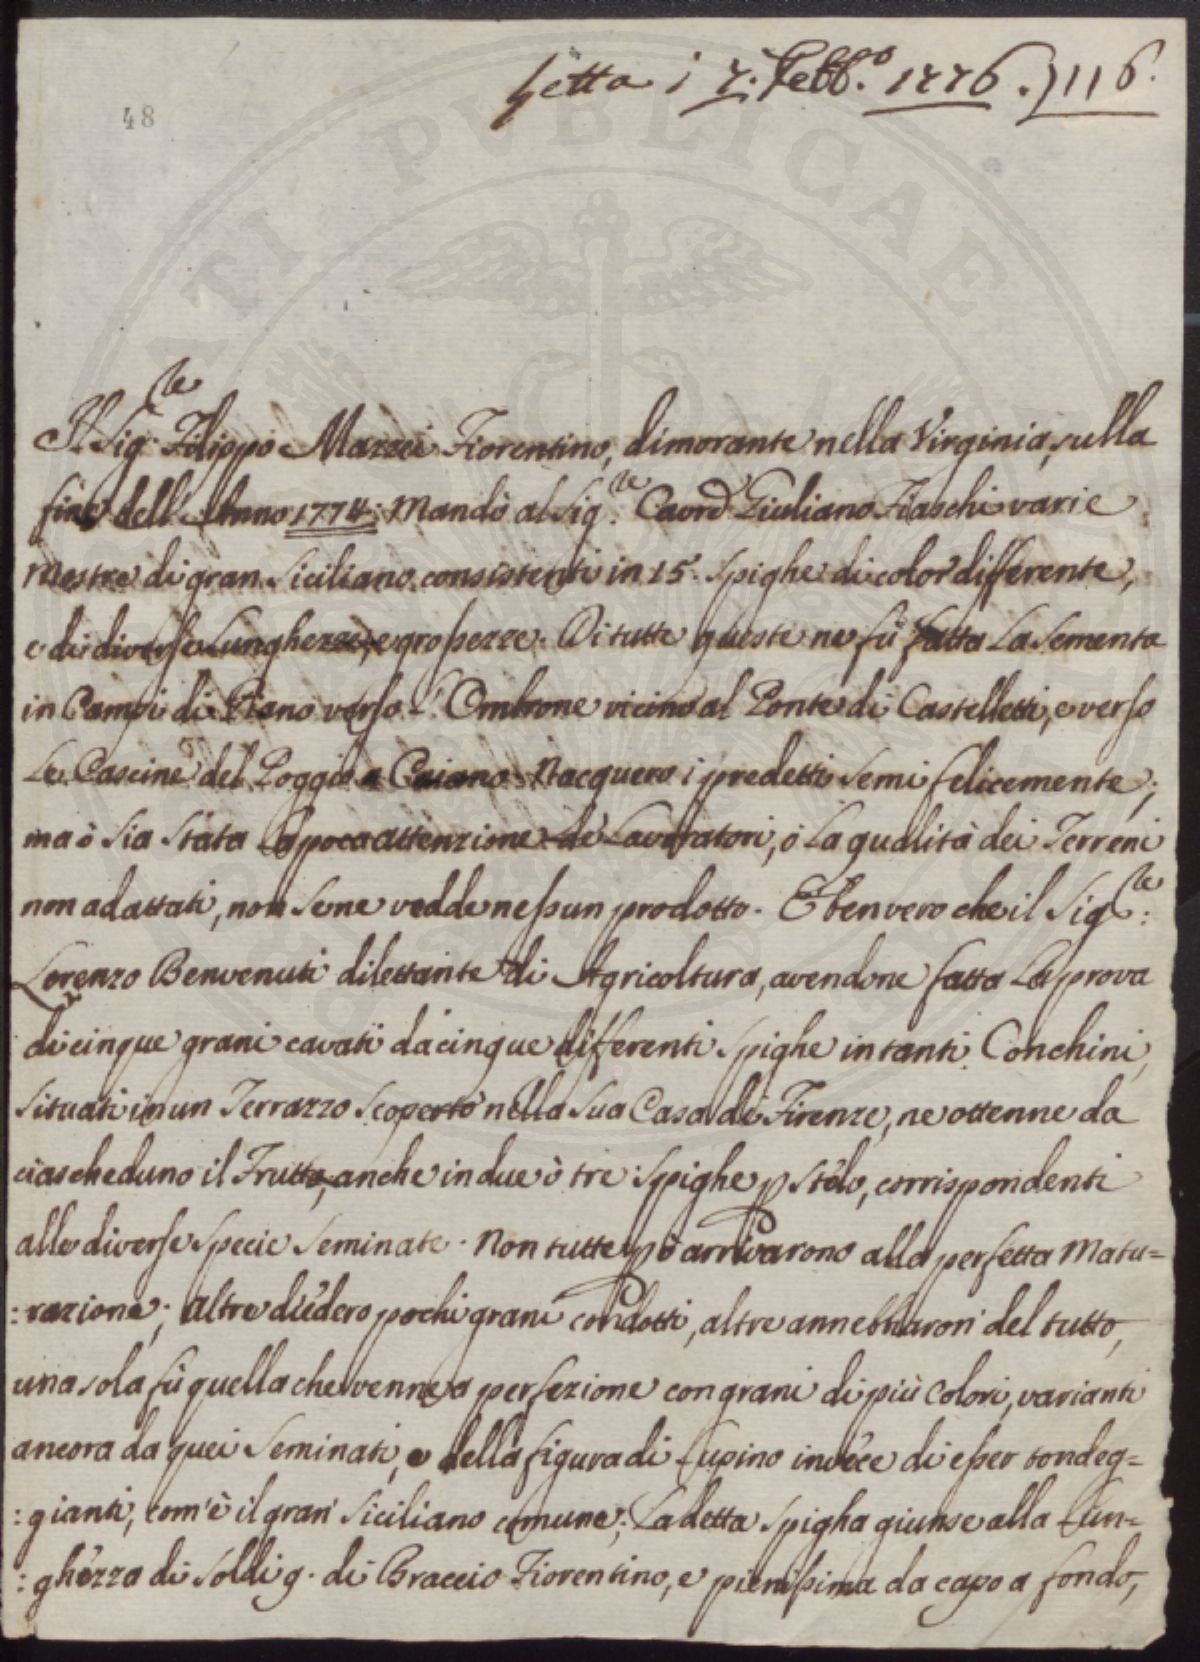 Letta i 7. Febb.o 1776. 116.
48
Il Sig.re Filippo Mazzei Fiorentino, dimorante nella Virginia, sulla
fine dell'Anno 1774: Mandò al Sig.re Giuliano Fiaschi varie
Mostre di gran Siciliano consistenti in 15. Spighe di color differente,
e di diverse Lunghezze, e grossezze. Di tutte queste ne fù fatta La Sementa
in Campi di Piano verso L'Ombrone vicino al Ponte di Castelletti, e verso
Le Cascine del Poggio a Caiano. Nacquero i predetti Semi felicemente;
ma ò Sia Stata La poca attenzione de Lavoratori, ò La qualità dei Terreni
non adattati, non Se ne vedde nessun prodotto. È ben vero che il Sig.re:
Lorenzo Benvenuti dilettante di Agricoltura, avendone fatta La prova
di cinque grani cavati da cinque differenti Spighe in tanti Conchini,
Situati in un Terrazzo Scoperto nella Sua Casa di Firenze, ne ottenne da
ciascheduno il Frutto, anche in due ò tre Spighe p Stelo, corrispondenti
alle diverse Specie Seminate. Non tutte pò arrivarono alla perfetta Matu=
:razione; altre diédero pochi grani condotti, altre annebbiaron del tutto,
una sola fù quella che venne a perfezione con grani di più Colori, varianti
ancora da quei Seminati, e della figura di Lupino invéce di esser tondeg=
:gianti, com'è il gran Siciliano comune; La detta Spigha giunse alla Lun=
:ghézza di Soldi 9. di Braccio Fiorentino, e pienissima da capo a fondo,